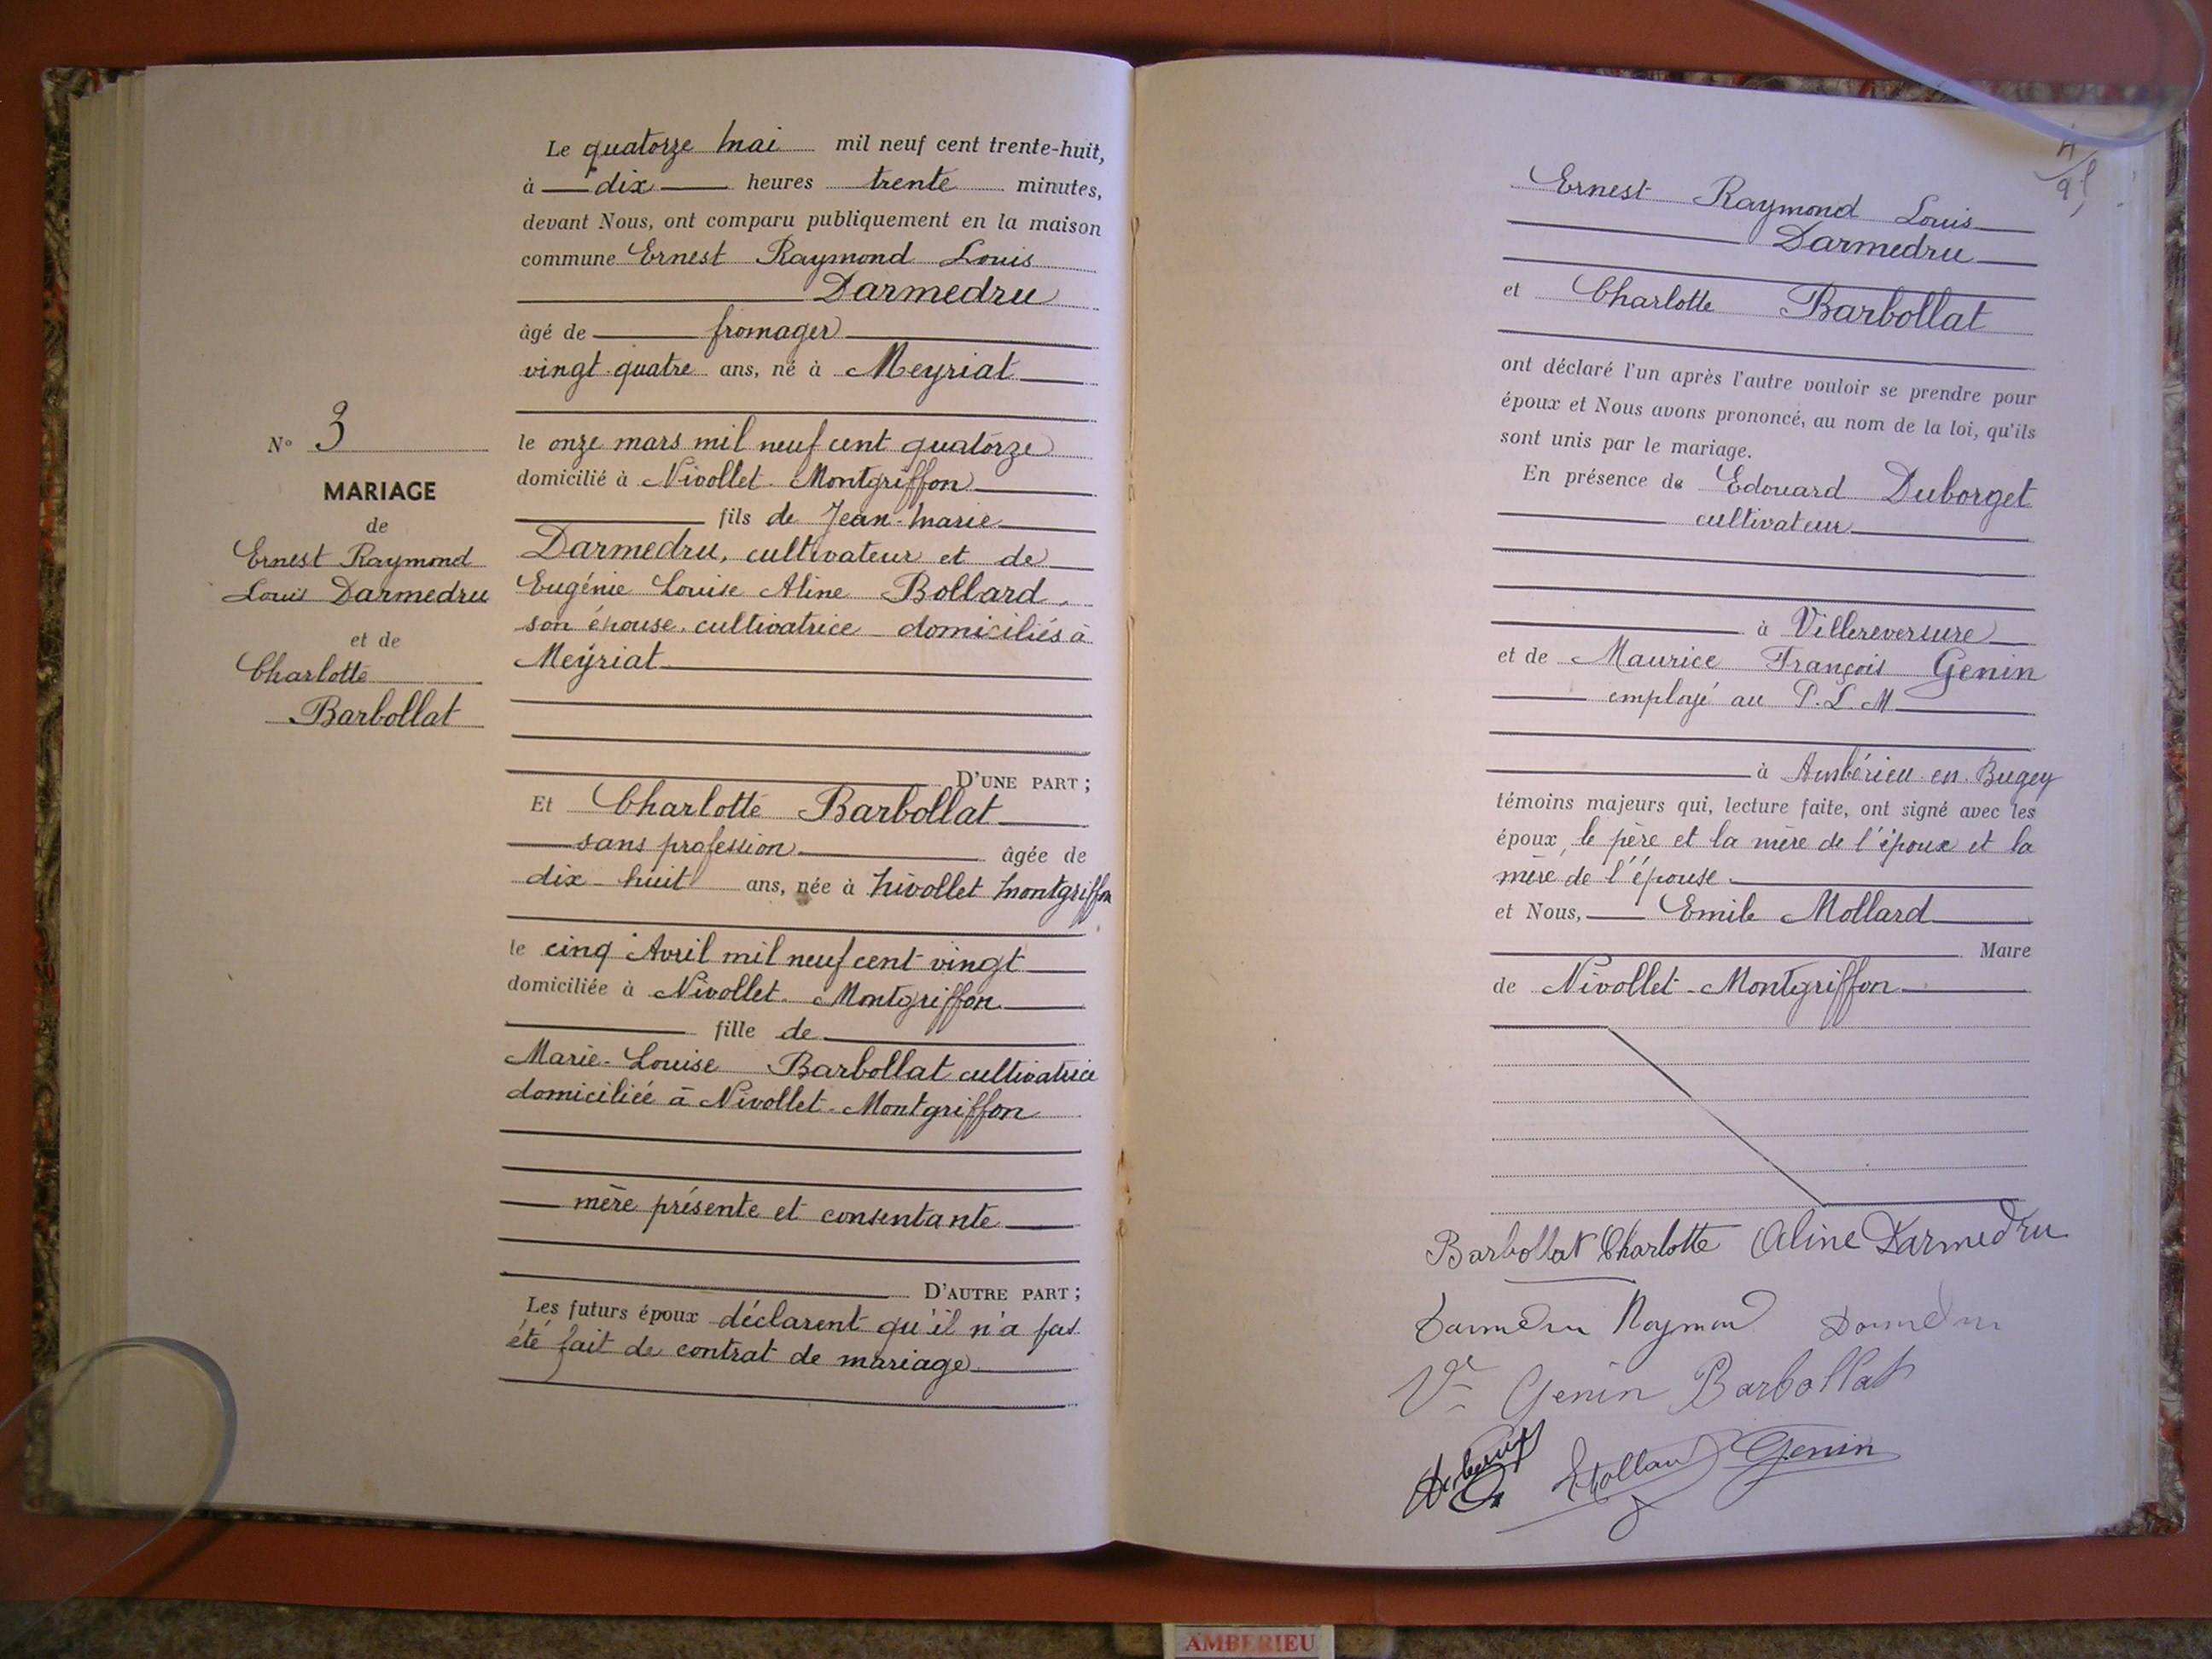 N° 3
MARIAGE
de
Ernest Raymond
Louis Darmedru
et de
Charlotte
Barbollat
Le quatorze Mai mil neuf cent trente-huit,
à dix heures trente minutes,
devant Nous, ont comparu publiquement en la maison
commune Ernest Raymond Louis
Darmedru
âgé de fromager
vingt-quatre ans, né à Meyriat
le onze mars mil neuf cent quatorze
domicilié à Nivollet-Montgriffon
fils de Jean-Marie
Darmedru, cultivateur et de
Eugénie Louise Aline Bollard,
son épouse, cultivatrice domiciliés à
Meyriat
D'UNE PART ;
Et Charlotte Barbollat
sans profession âgée de
dix-huit ans, née à Nivollet Montgriffon
le cinq Avril mil neuf cent vingt
domiciliée à Nivollet-Montgriffon
fille de
Marie-Louise Barbollat cultivatrice
domiciliée à Nivollet-Montgriffon
mère présente et consentante
D'AUTRE PART ;
Les futurs époux déclarent qu'il n'a pas
été fait de contrat de mariage
Ernest Raymond Louis
Darmedru
et Charlotte Barbollat
ont déclaré l'un après l'autre vouloir se prendre pour
époux et Nous avons prononcé, au nom de la loi, qu'ils
sont unis par le mariage.
En présence de Edouard Duborget
cultivateur
à Villereversure
et de Maurice François Genin
employé au P.L.M
à Ambérieu-en-Bugey
témoins majeurs qui, lecture faite, ont signé avec les
époux, le père et la mère de l'époux et la
mère de l'épouse
et Nous, Emile Mollard
Maire
de Nivollet-Montgriffon
Barbollat Charlotte Aline Darmedru
Darmedru Raymond Darmedru
Ve Genin Barbollat
EMollard Genin
AMBERIEU